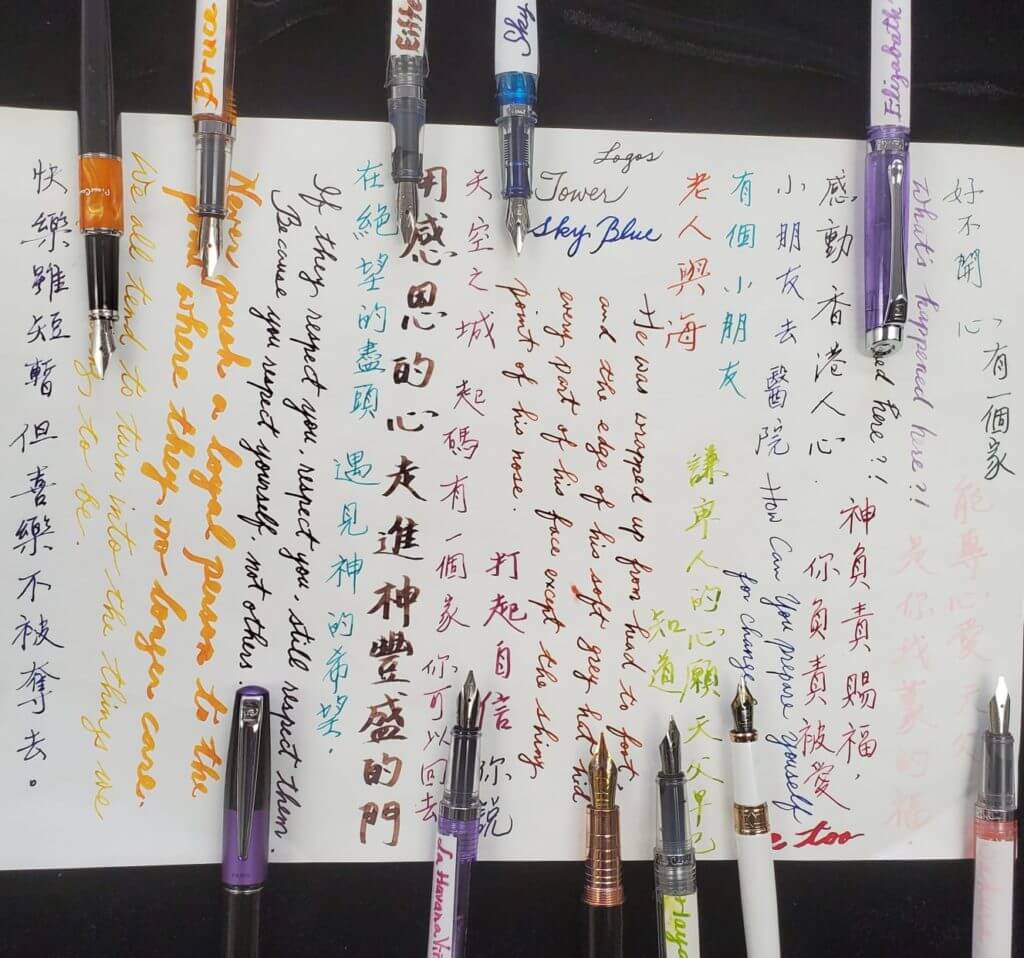 Bruce
Sky
Elizabeth
快樂雖短暫 但喜樂不被奪去。
We all tend to turn into the things we
to be.
Never push a logal person to the
point where they no longer care.
If they respect you, respect you, still respect them.
Because you respect yourself, not others.
在絕望的盡頭 遇見神的希望.
用感恩的心走進神豐盛的門
天空之城 起碼有一個家 你可以回去
打起自信 你說
Logos
Tower
Sky Blue
He was wrapped up from head to foot,
and the edge of his soft grey hat hid
every part of his face except the shing
point of his nose.
老人與海
謙卑人的心願 天父早已
知道
有個小朋友
小朋友去醫院 How Can You prepare yourself
for change
感動香港人心.
你負責被愛
神負責賜福,
too
here?!
What's happened here?!
好不開心, 有一個家
La Havana Vi
Haya